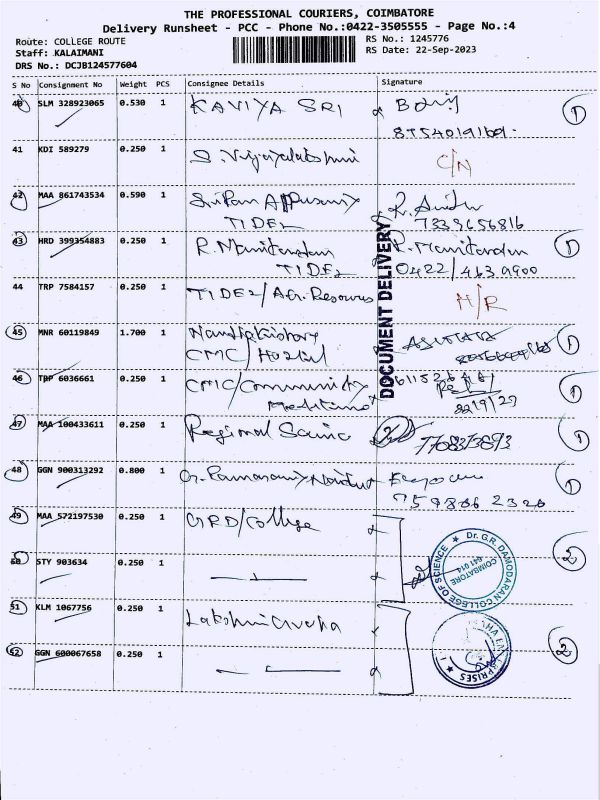 THE PROFESSIONAL COURIERS, COIMBATORE
Delivery Runsheet - PCC - Phone No.:0422-3505555 - Page No.:4
Route: COLLEGE ROUTE
Staff: KALAIMANI
DRS No.: DCJB124577604
RS No.: 1245776
RS Date: 22-Sep-2023
S No Consignment No Weight PCS Consignee Details Signature
40 SLM 328923065 0.530 1 KAVIYA SRI
8754019169
1
41 KDI 589279 0.250 1 S. Vijayalakshmi C/N
42 MAA 861743534 0.590 1
TIDEL 7339656816
43 HRD 399354883 0.250 1 R. Manikandan R. Manikandan 1
TIDEL 0422/463 9900
44 TRP 7584157 0.250 1 TIDEL/ H/R
DOCUMENT DELIVERY
45 MNR 60119849 1.700 1
CMC/Hostel
1
46 TRP 6036661 0.250 1 CMC/Community
22/9/23
1
47 MAA 100433611 0.250 1 Regional 7708373893 1
48 GGN 900313292 0.800 1
1
49 MAA 572197530 0.250 1 GRD/College
50 STY 903634 0.250 1
2
Dr. G.R. DAMODARAN COLLEGE OF SCIENCE
COIMBATORE
641 014
51 KLM 1067756 0.250 1
52 GGN 600067658 0.250 1
2